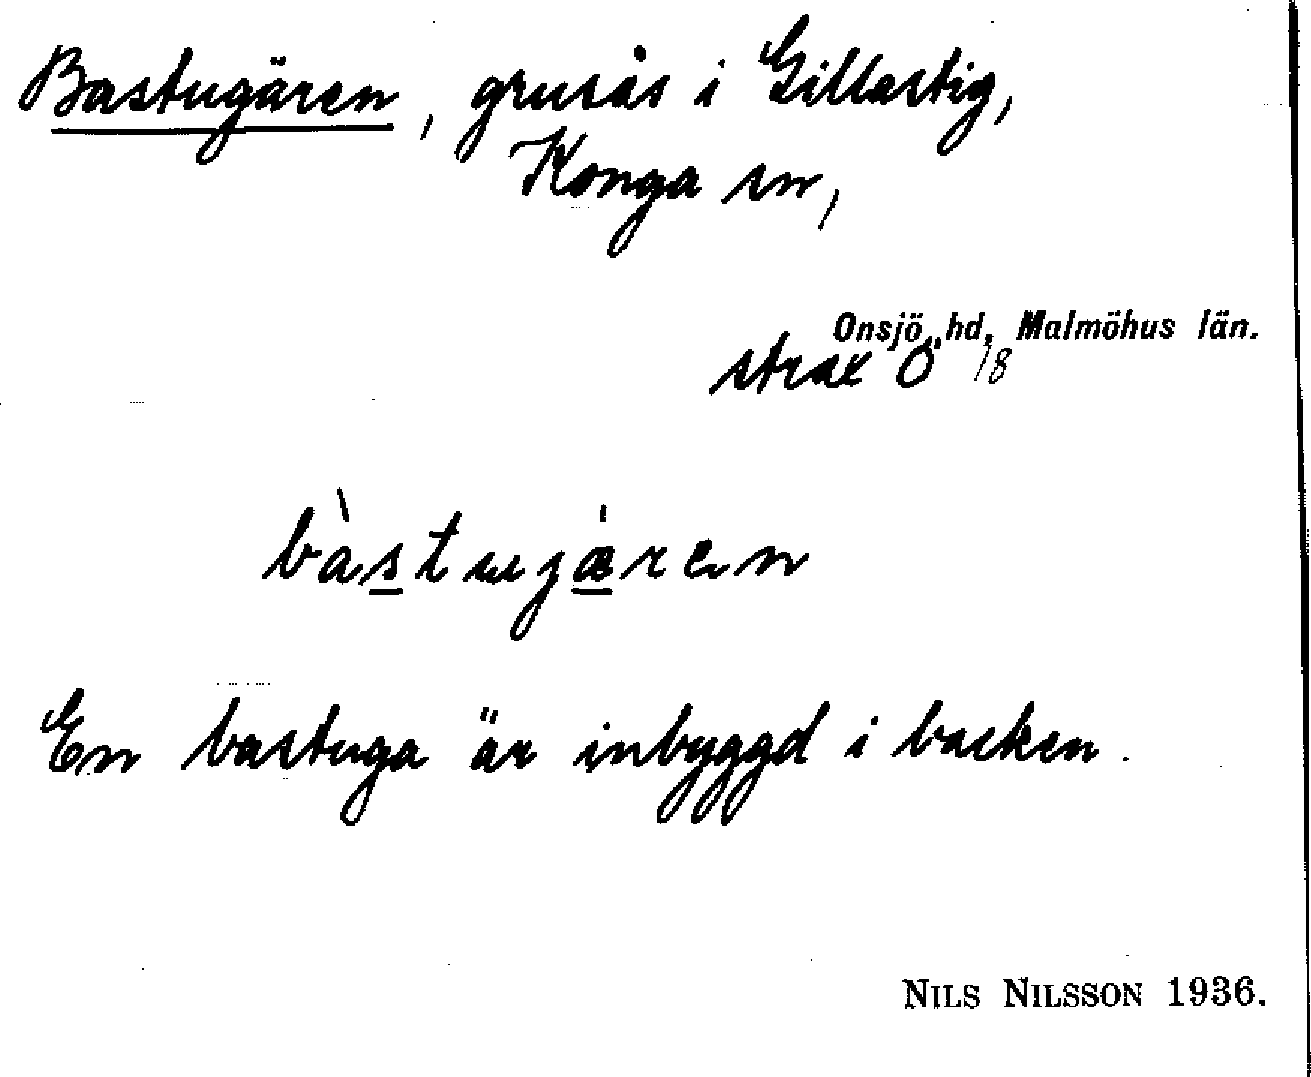 Bastugären, grusås i Gillastig,
Konga sn,
Onsjö hd, Malmöhus län.
strax Ö /8
bàstugæ̀ren
En bastuga är inbyggd i backen.
NILS NILSSON 1936.